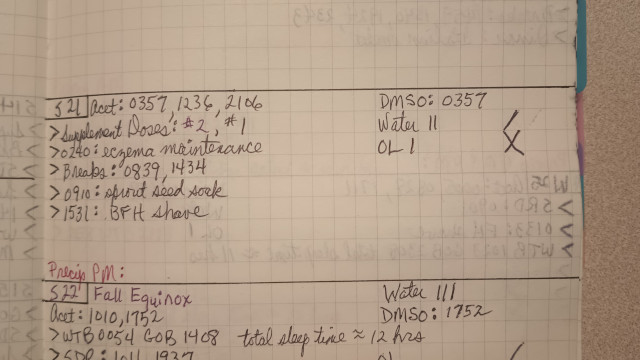 S21 Acet: 0357, 1236, 2106 DMSO: 0357
>Supplement Doses: #2, #1 Water II
>0240: eczema maintenance OL 1
>Breaks: 0839, 1434
>0910: sprout seed soak
>1531: BFH shave
Precip PM:
S22 Fall Equinox Water III
Acet: 1010, 1752 DMSO: 1752
>WTB 0054 GOB 1408 total sleep time ≈ 12 hrs
>SDR: 1011, 1937 OL